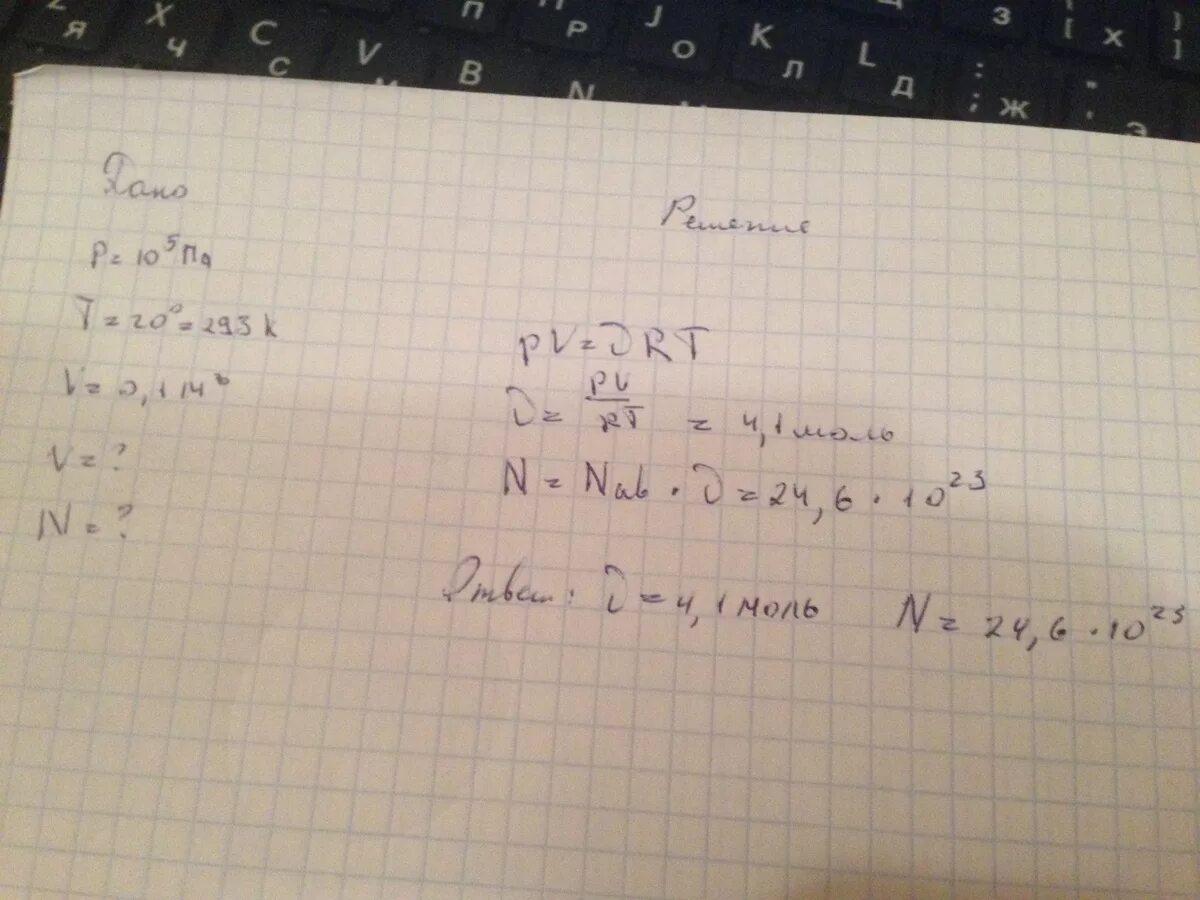 Я Ч X C С V B П Р J О K Л L Д З [ Х ] : ; Ж " Э N
Дано
P = 10⁵ Па
T = 20° = 293 k
V = 0,1 м³
V = ?
N = ?
Решение
pV = νRT
ν = pV/RT = 4,1 моль
N = Nab · ν = 24,6 · 10²³
Ответ: ν = 4,1 моль N = 24,6 · 10²³